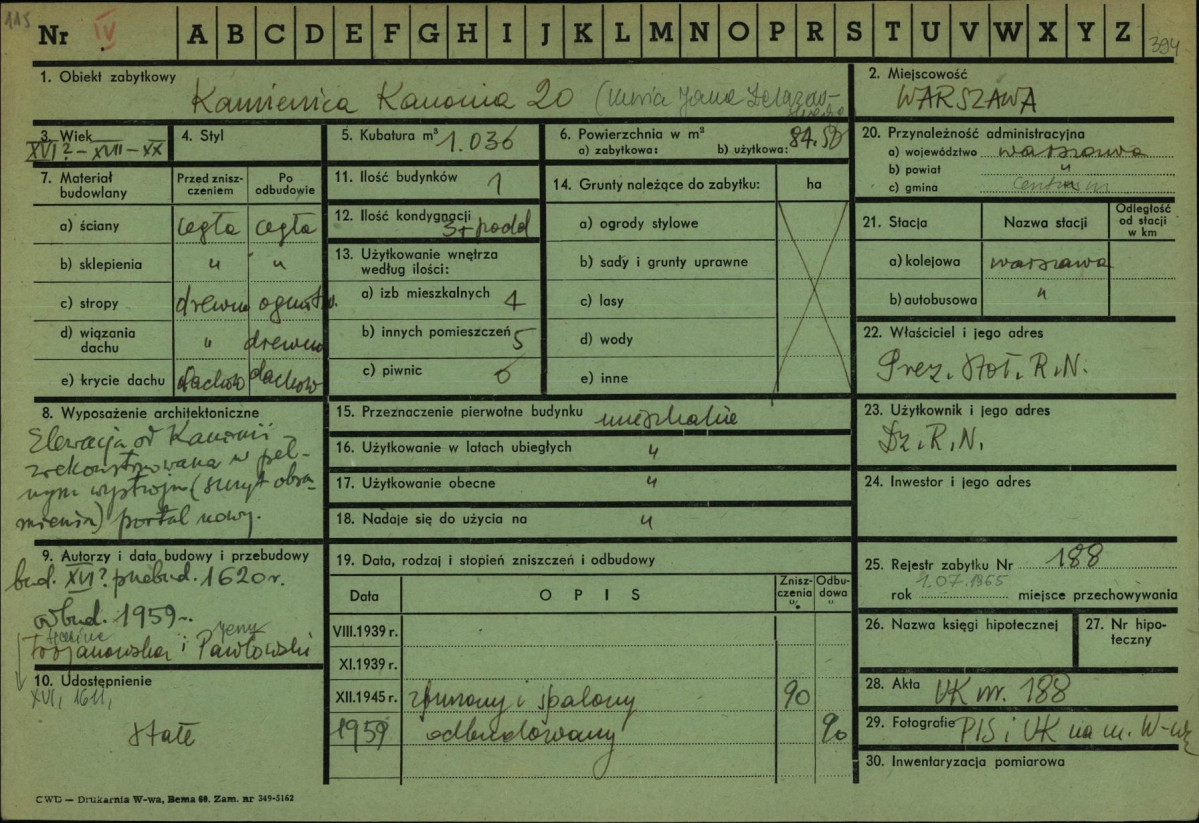 115
Nr IV A B C D E F G H I J K L M N O P R S T U V W X Y Z 394
1. Obiekt zabytkowy
Kamienica Kanonia 20
2. Miejscowość
WARSZAWA
3. Wiek
XVI? – XVII – XX
4. Styl
5. Kubatura m³ 1.036
6. Powierzchnia w m² 84.58
a) zabytkowa: b) użytkowa:
20. Przynależność administracyjna
a) województwo warszawa
b) powiat "
c) gmina
7. Materiał budowlany
Przed zniszczeniem
Po odbudowie
a) ściany cegła cegła
b) sklepienia " "
c) stropy drewn ogniotrw.
d) wiązania dachu " drewno
e) krycie dachu dachów dachów
11. Ilość budynków 1
12. Ilość kondygnacji 3+podd
13. Użytkowanie wnętrza według ilości:
a) izb mieszkalnych 4
b) innych pomieszczeń 5
c) piwnic 6
14. Grunty należące do zabytku: ha
a) ogrody stylowe
b) sady i grunty uprawne
c) lasy
d) wody
e) inne
21. Stacja Nazwa stacji Odległość od stacji w km
a) kolejowa warszawa
b) autobusowa "
22. Właściciel i jego adres
Prez. Stoł. R.N.
8. Wyposażenie architektoniczne
Elewacja od Kanonii
zrekonstruowana w peł-
nym wystroju (szczyt obra-
mienia) portal nowy.
15. Przeznaczenie pierwotne budynku mieszkalne
16. Użytkowanie w latach ubiegłych "
17. Użytkowanie obecne "
18. Nadaje się do użycia na "
23. Użytkownik i jego adres
Dz. R.N.
24. Inwestor i jego adres
9. Autorzy i data budowy i przebudowy
bud. XVI? przebud. 1620 r.
odbud. 1959 r.
Jerzy
Trojanowska i Pawłowski
19. Data, rodzaj i stopień zniszczeń i odbudowy
Data OPIS Zniszczenia % Odbudowa %
VIII.1939 r.
XI.1939 r.
XII.1945 r. zburzony i spalony 90
1959 odbudowany 90
25. Rejestr zabytku Nr 188
1.07.1965
rok miejsce przechowywania
26. Nazwa księgi hipotecznej
27. Nr hipoteczny
10. Udostępnienie
XVI, 1611,
stałe
28. Akta UK nr. 188
29. Fotografie PIS i UK na m. W-wę
30. Inwentaryzacja pomiarowa
CWD — Drukarnia W-wa, Bema 60. Zam. nr 349-5162